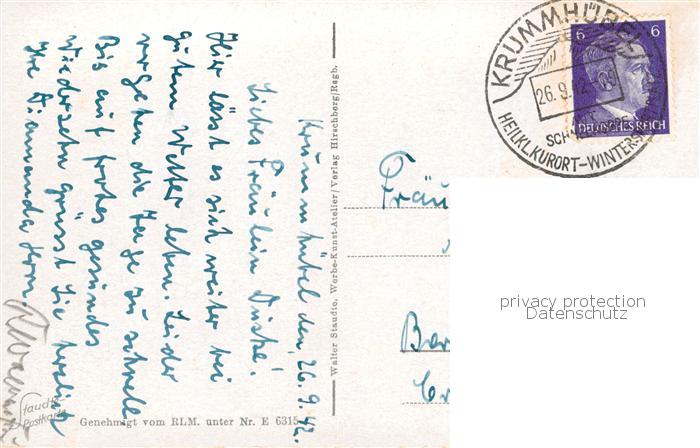 Krummhübel den, 26. 9. 42.
Liebes Fräulein
Hier lässt es sich weiter bei
gutem Wetter leben. Leider
vergehen die Tage zu schnell
Bis auf frohes gesundes
Wiedersehn grüsst Sie herzlich
Ihre
Walter Staudie, Werbe-Kunst-Atelier/Verlag Hirschberg/Rsgb.
Genehmigt vom RLM. unter Nr. E 6315
Staudie
Postkarte
KRUMMHÜBEL
26.9.42.-09
HEILKLKURORT-WINTERS
6 6
DEUTSCHES REICH
Fräu
Ber
privacy protection
Datenschutz